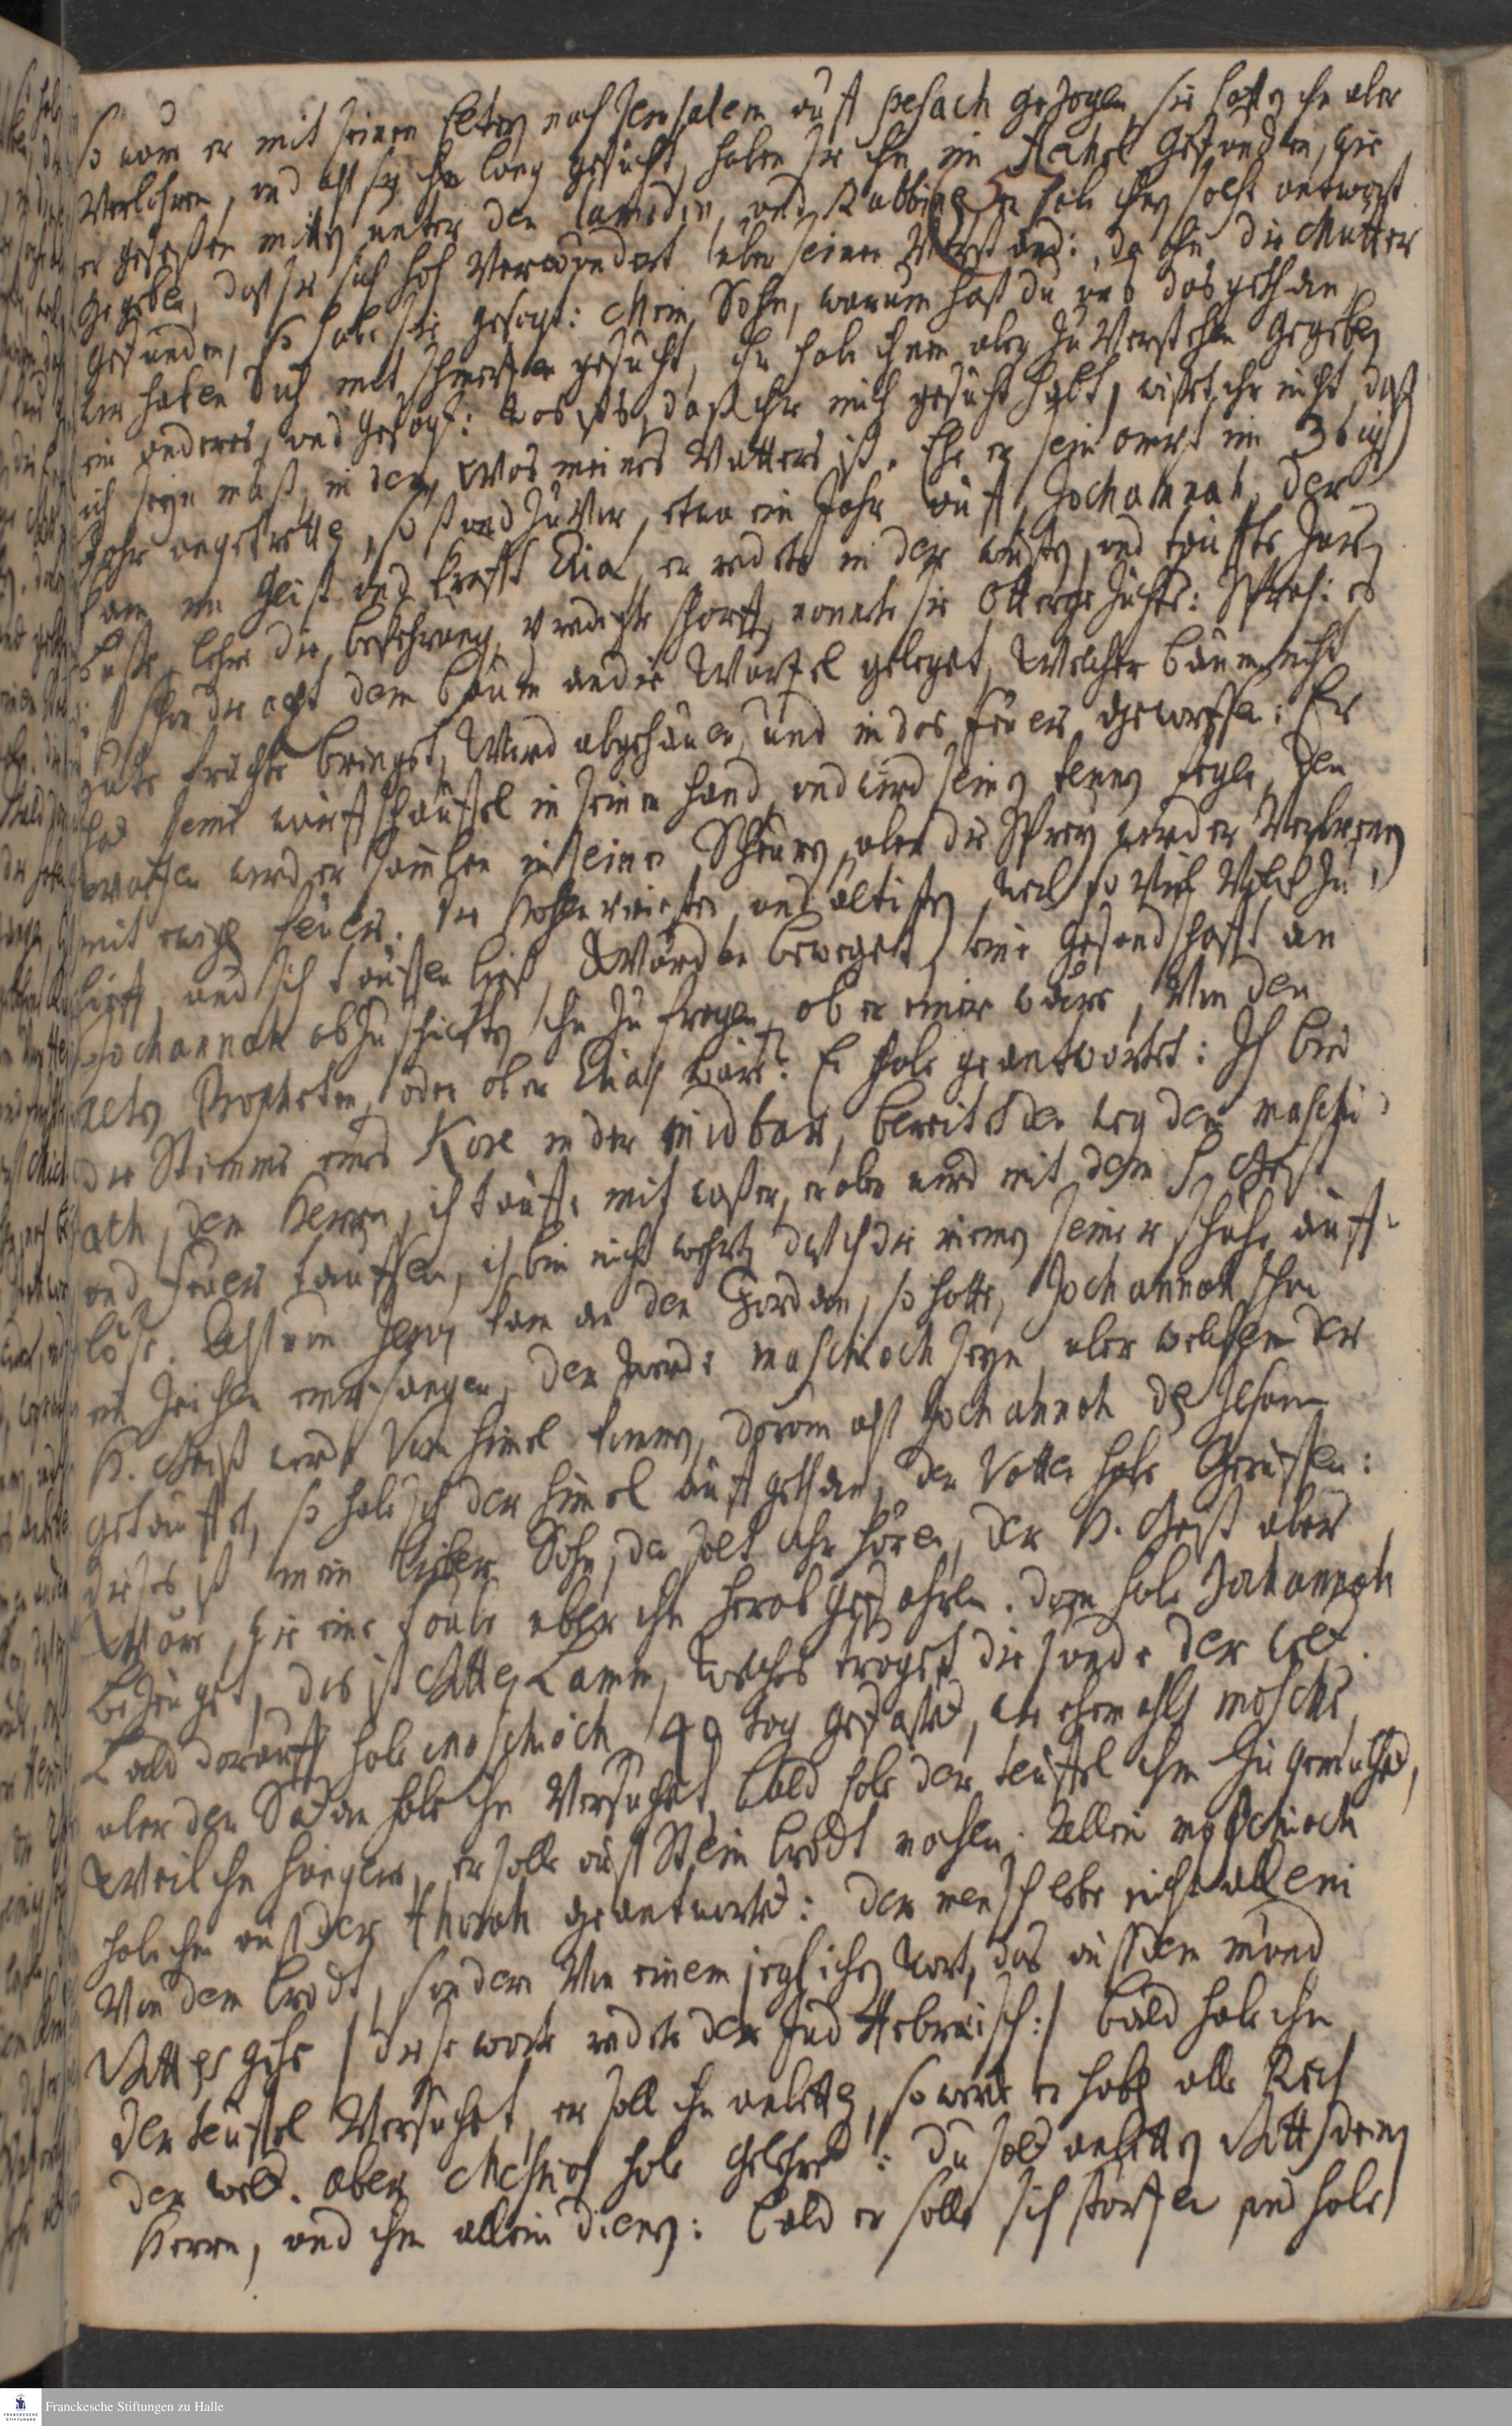 so wäre er mit seinen Eltern nach Jerusalem auff pesach gezogen, sie hatten ihn aber
verlohren, und alß sie ihn lang gesucht, haben sie ihn im Hahel gefunden, wie
er geseßen mitten unter den lamdin, und Rabbinen, er habe ihnen solche antwort
gegeben, daß sie sich hoch verwundert über seinen Verstand: da ihn die Mutter
gefunden, so habe sie gesagt: Mein Sohn, warum hast du uns das gethan,
wir haben dich mit schmertzen gesucht, Er habe ihnen aber zu verstehen gegeben
ein anderes, und gesagt: was ists, daß ihr mich gesucht habt, wißet ihr nicht, daß
ich seyn muß, in dem, was meines Vatters ist. Ehe er sein amt im 30igst
Jahr angetretten, so stund zuvor, etwa ein Jahr auff, Jochannah, der
kam im Geist und krafft Elia, er redete in der wüsten, und tauffte Juden
buße, lehre die bekehrung, predigte scharff, nennete sie Otterngezüchte: Sprach: es
ist schon die axt dem baum an die Wurtzel geleget, Welcher baum nicht
gute früchte bringet, Wird abgehauen, und in das feuer geworffen: Er
hat seine wurffschauffel in seiner hand, und wird seine tenne fegen, den
waitzen wird er samlen in seine Scheuren, aber die Spreu wird er verbrennen
mit ewigen feuer. Die Hohenpriester und ältisten, weil so viel Volck zu
lieff, und sich tauffen ließ, Wurden beweget, eine gesandschafft an
Jochannah abzuschicken, ihn zu fragen, ob er einer wäre, Von den
alten Propheten, oder ob er Elias wäre? Er habe geantwortet: Ich bin
die Stimme eines Kore in der midbar, bereitet den weg dem maschi
ach, dem Herrn, ich tauffe mit waßer, er aber wird mit dem H. Geist
und feuer tauffen, ich bin nicht wehrt, daß ich die riemen seiner schuhe auff-
löse. Alß nun Jesus kam an den Jordan, so hatte, Jochannah schon
ein Zeichen empfangen, der werde maschioch seyn, über welchen der
H. Geist werde vom himel kommen, darum alß Jochannah den Jesum
getauffet, so habe sich der himel auffgethan, der Vatter habe geruffen:
dieses ist mein lieber Sohn, den solt ihr hören, der H. Geist aber
wäre, wie eine taube über ihn herab gefahren. dann habe Jochannah
bezeuget, das ist Gottes Lamm, welches träget die sünde der welt.
Bald darauff habe maschioch 40 tag gefastet, wie ehemahls mosche,
aber der Satan habe ihn versuchet, bald habe der teuffel ihm zu gemuthet,
Weil ihn hungere, er solle auß Stein brodt machen: Allein maschioch
habe ihm auß der thorah geantwortet: der mensch lebe nicht allein
Von dem brodt, sondern Von einem jeglichen wort, das auß dem mund
Gottes gehe / diese worte redete der Jud Hebreisch:/ bald habe ihn
der teuffel versuchet, er soll ihn anbetten, so werde er haben alle Reich
der welt. aber Meschioch habe gelehret: du solt anbetten Gott deinen
Herrn, und ihm allein dienen: bald er solle sich stürtzen und habe
Franckesche Stiftungen zu Halle